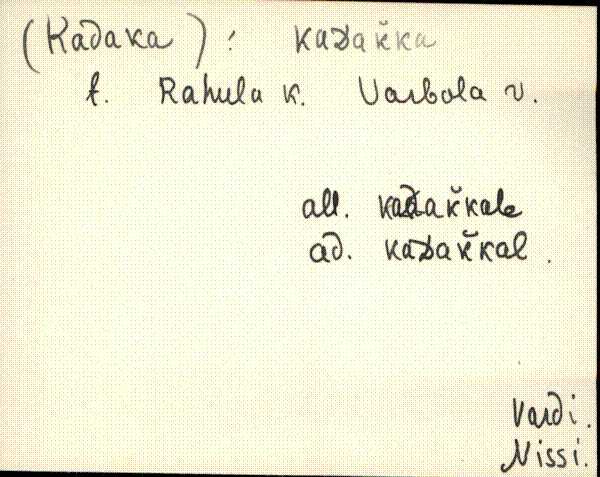 (Kadaka) : kaᴅak̆ka
t. Rahula k. Varbola v.
all. kaᴅak̆kale
ad. kaᴅak̆kal.
Vardi.
Nissi.